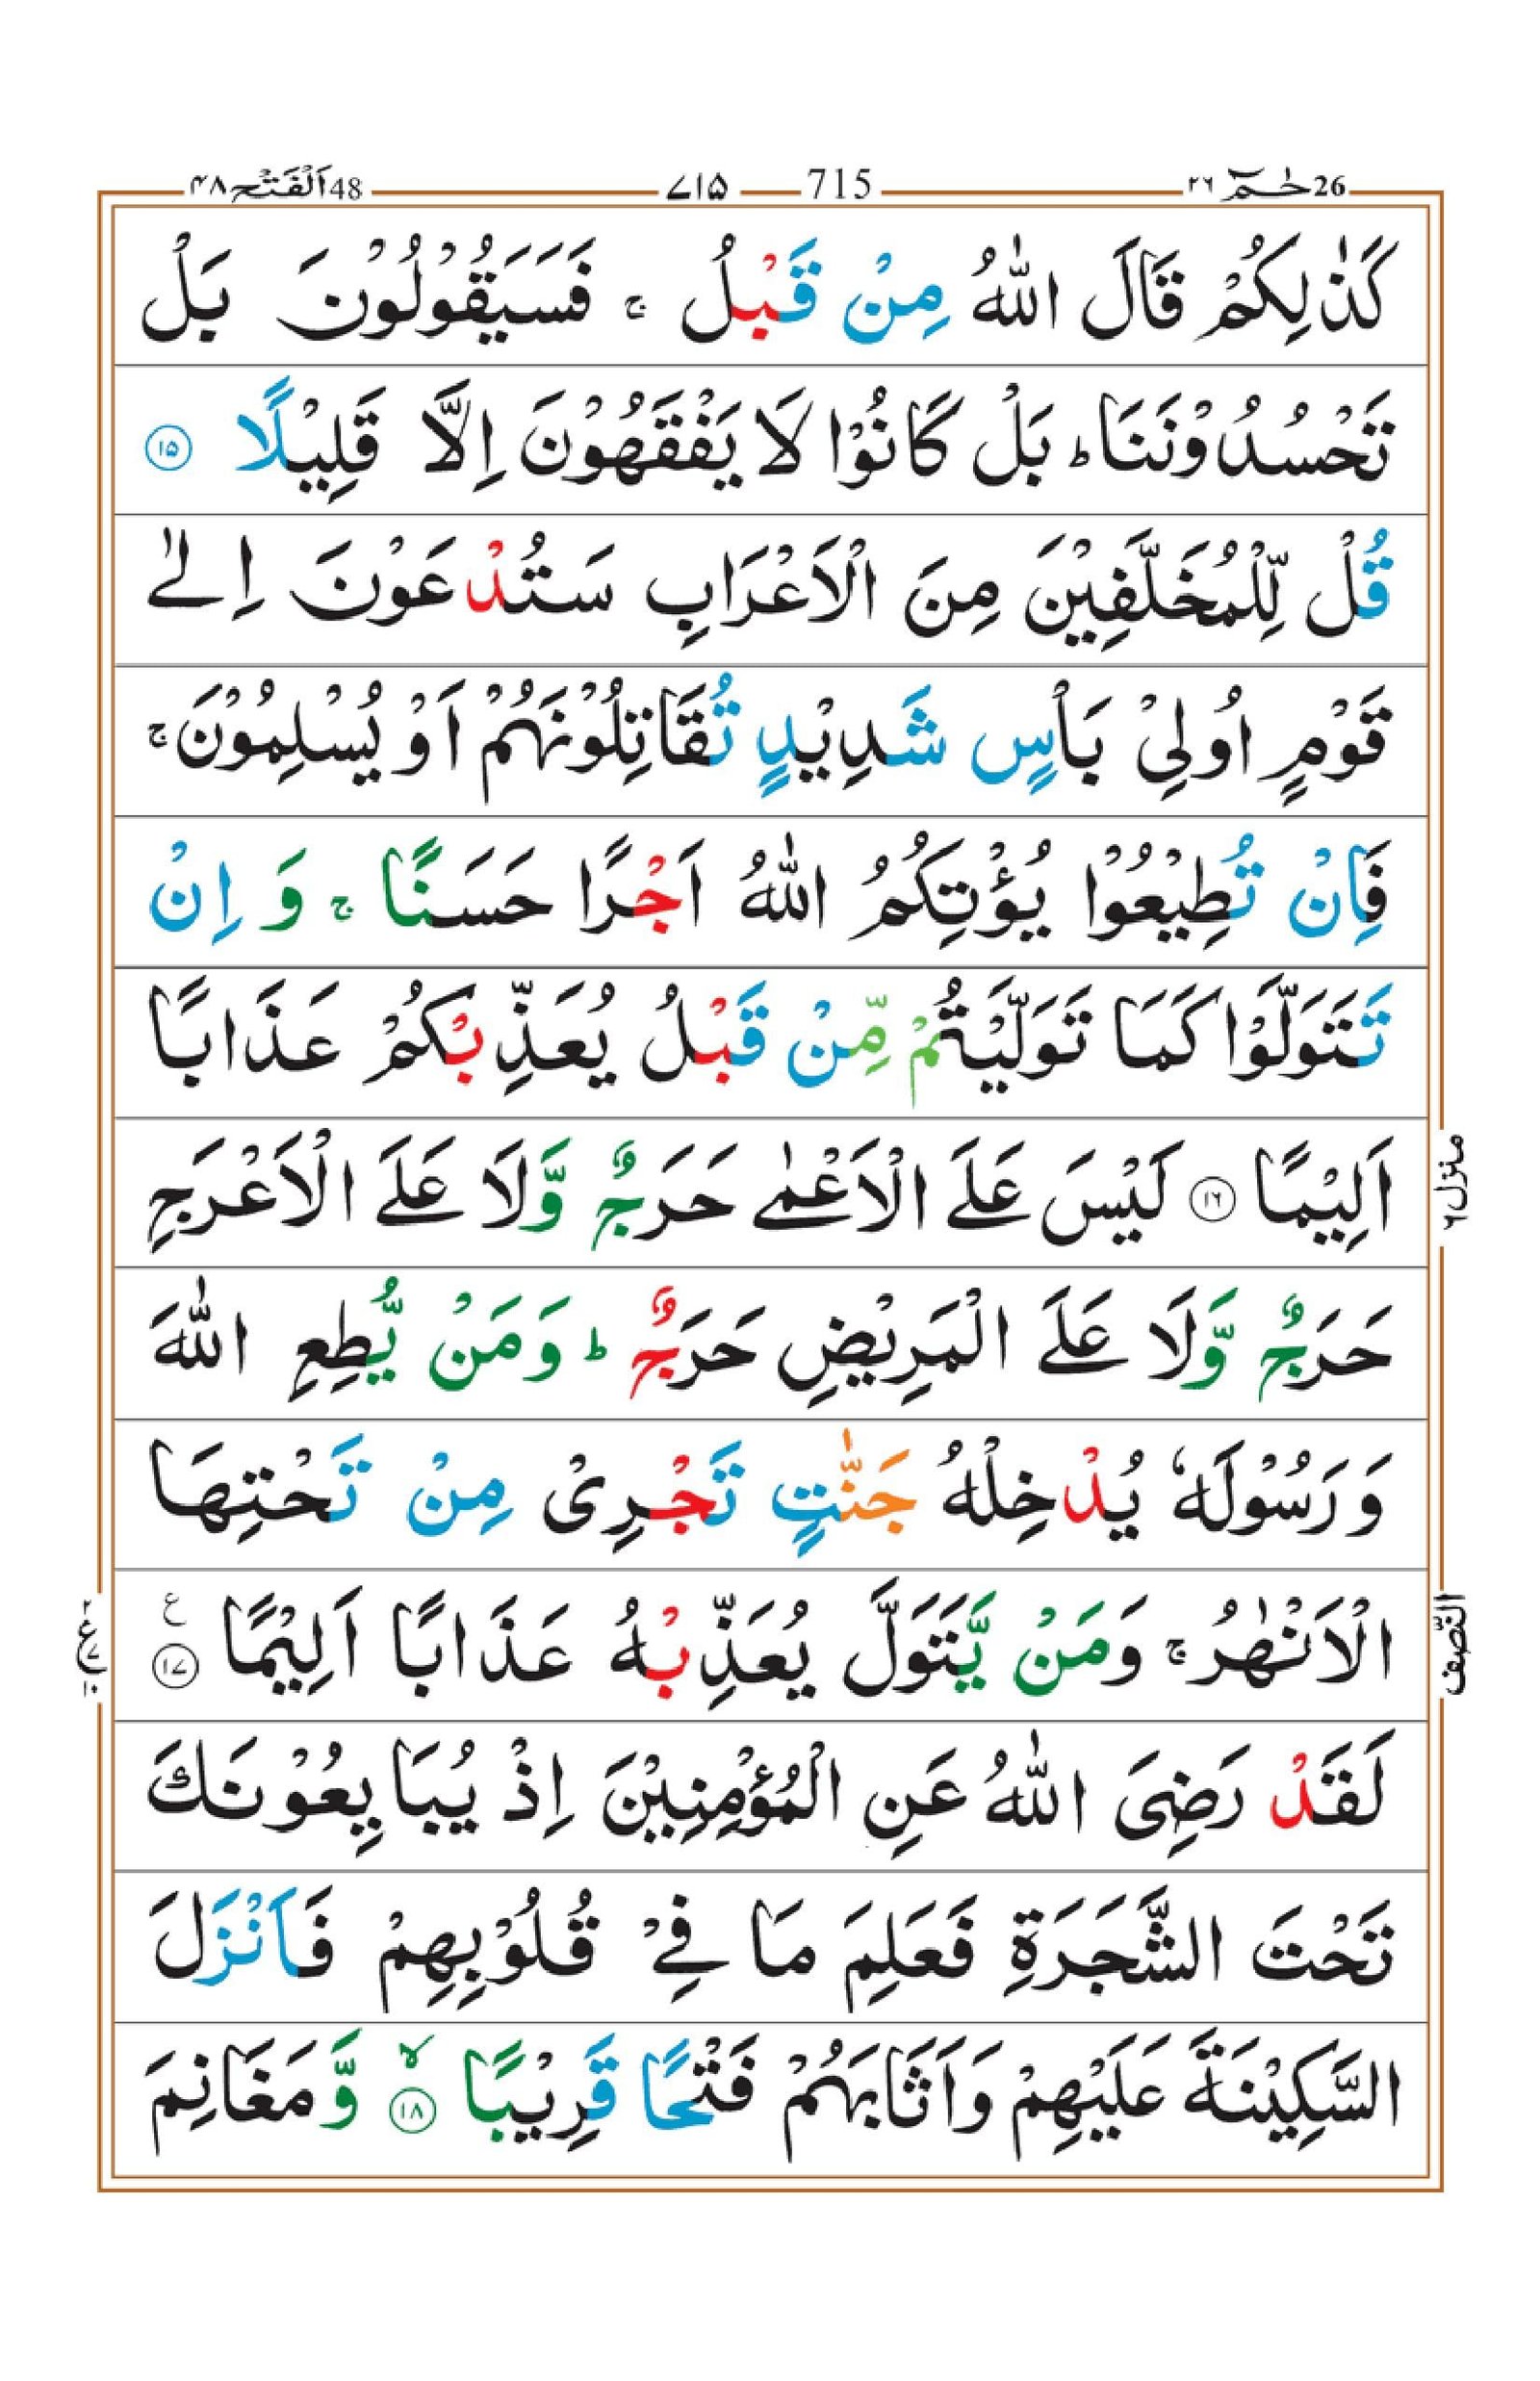 26 حٰمٓ ٢٦ 715 ٧١٥ 48 اَلْفَتْح ٤٨
كَذٰلِكُمْ قَالَ اللّٰهُ مِنْ قَبْلُ ۚ فَسَيَقُوْلُوْنَ بَلْ
تَحْسُدُوْنَنَا ؕ بَلْ كَانُوْا لَا يَفْقَهُوْنَ اِلَّا قَلِيْلًا ۝۱۵
قُلْ لِّلْمُخَلَّفِيْنَ مِنَ الْاَعْرَابِ سَتُدْعَوْنَ اِلٰى
قَوْمٍ اُولِيْ بَاْسٍ شَدِيْدٍ تُقَاتِلُوْنَهُمْ اَوْ يُسْلِمُوْنَ ۚ
فَاِنْ تُطِيْعُوْا يُؤْتِكُمُ اللّٰهُ اَجْرًا حَسَنًا ۚ وَ اِنْ
تَتَوَلَّوْا كَمَا تَوَلَّيْتُمْ مِّنْ قَبْلُ يُعَذِّبْكُمْ عَذَابًا
اَلِيْمًا ۝۱۶ لَيْسَ عَلَى الْاَعْمٰى حَرَجٌ وَّلَا عَلَى الْاَعْرَجِ
حَرَجٌ وَّلَا عَلَى الْمَرِيْضِ حَرَجٌ ؕ وَمَنْ يُّطِعِ اللّٰهَ
وَرَسُوْلَهٗ يُدْخِلْهُ جَنّٰتٍ تَجْرِىْ مِنْ تَحْتِهَا
الْاَنْهٰرُ ۚ وَمَنْ يَّتَوَلَّ يُعَذِّبْهُ عَذَابًا اَلِيْمًا ۝۱۷ ع
لَقَدْ رَضِىَ اللّٰهُ عَنِ الْمُؤْمِنِيْنَ اِذْ يُبَايِعُوْنَكَ
تَحْتَ الشَّجَرَةِ فَعَلِمَ مَا فِيْ قُلُوْبِهِمْ فَاَنْزَلَ
السَّكِيْنَةَ عَلَيْهِمْ وَاَثَابَهُمْ فَتْحًا قَرِيْبًا ۙ ۝۱۸ وَّمَغَانِمَ
منزل ٦
النّصف